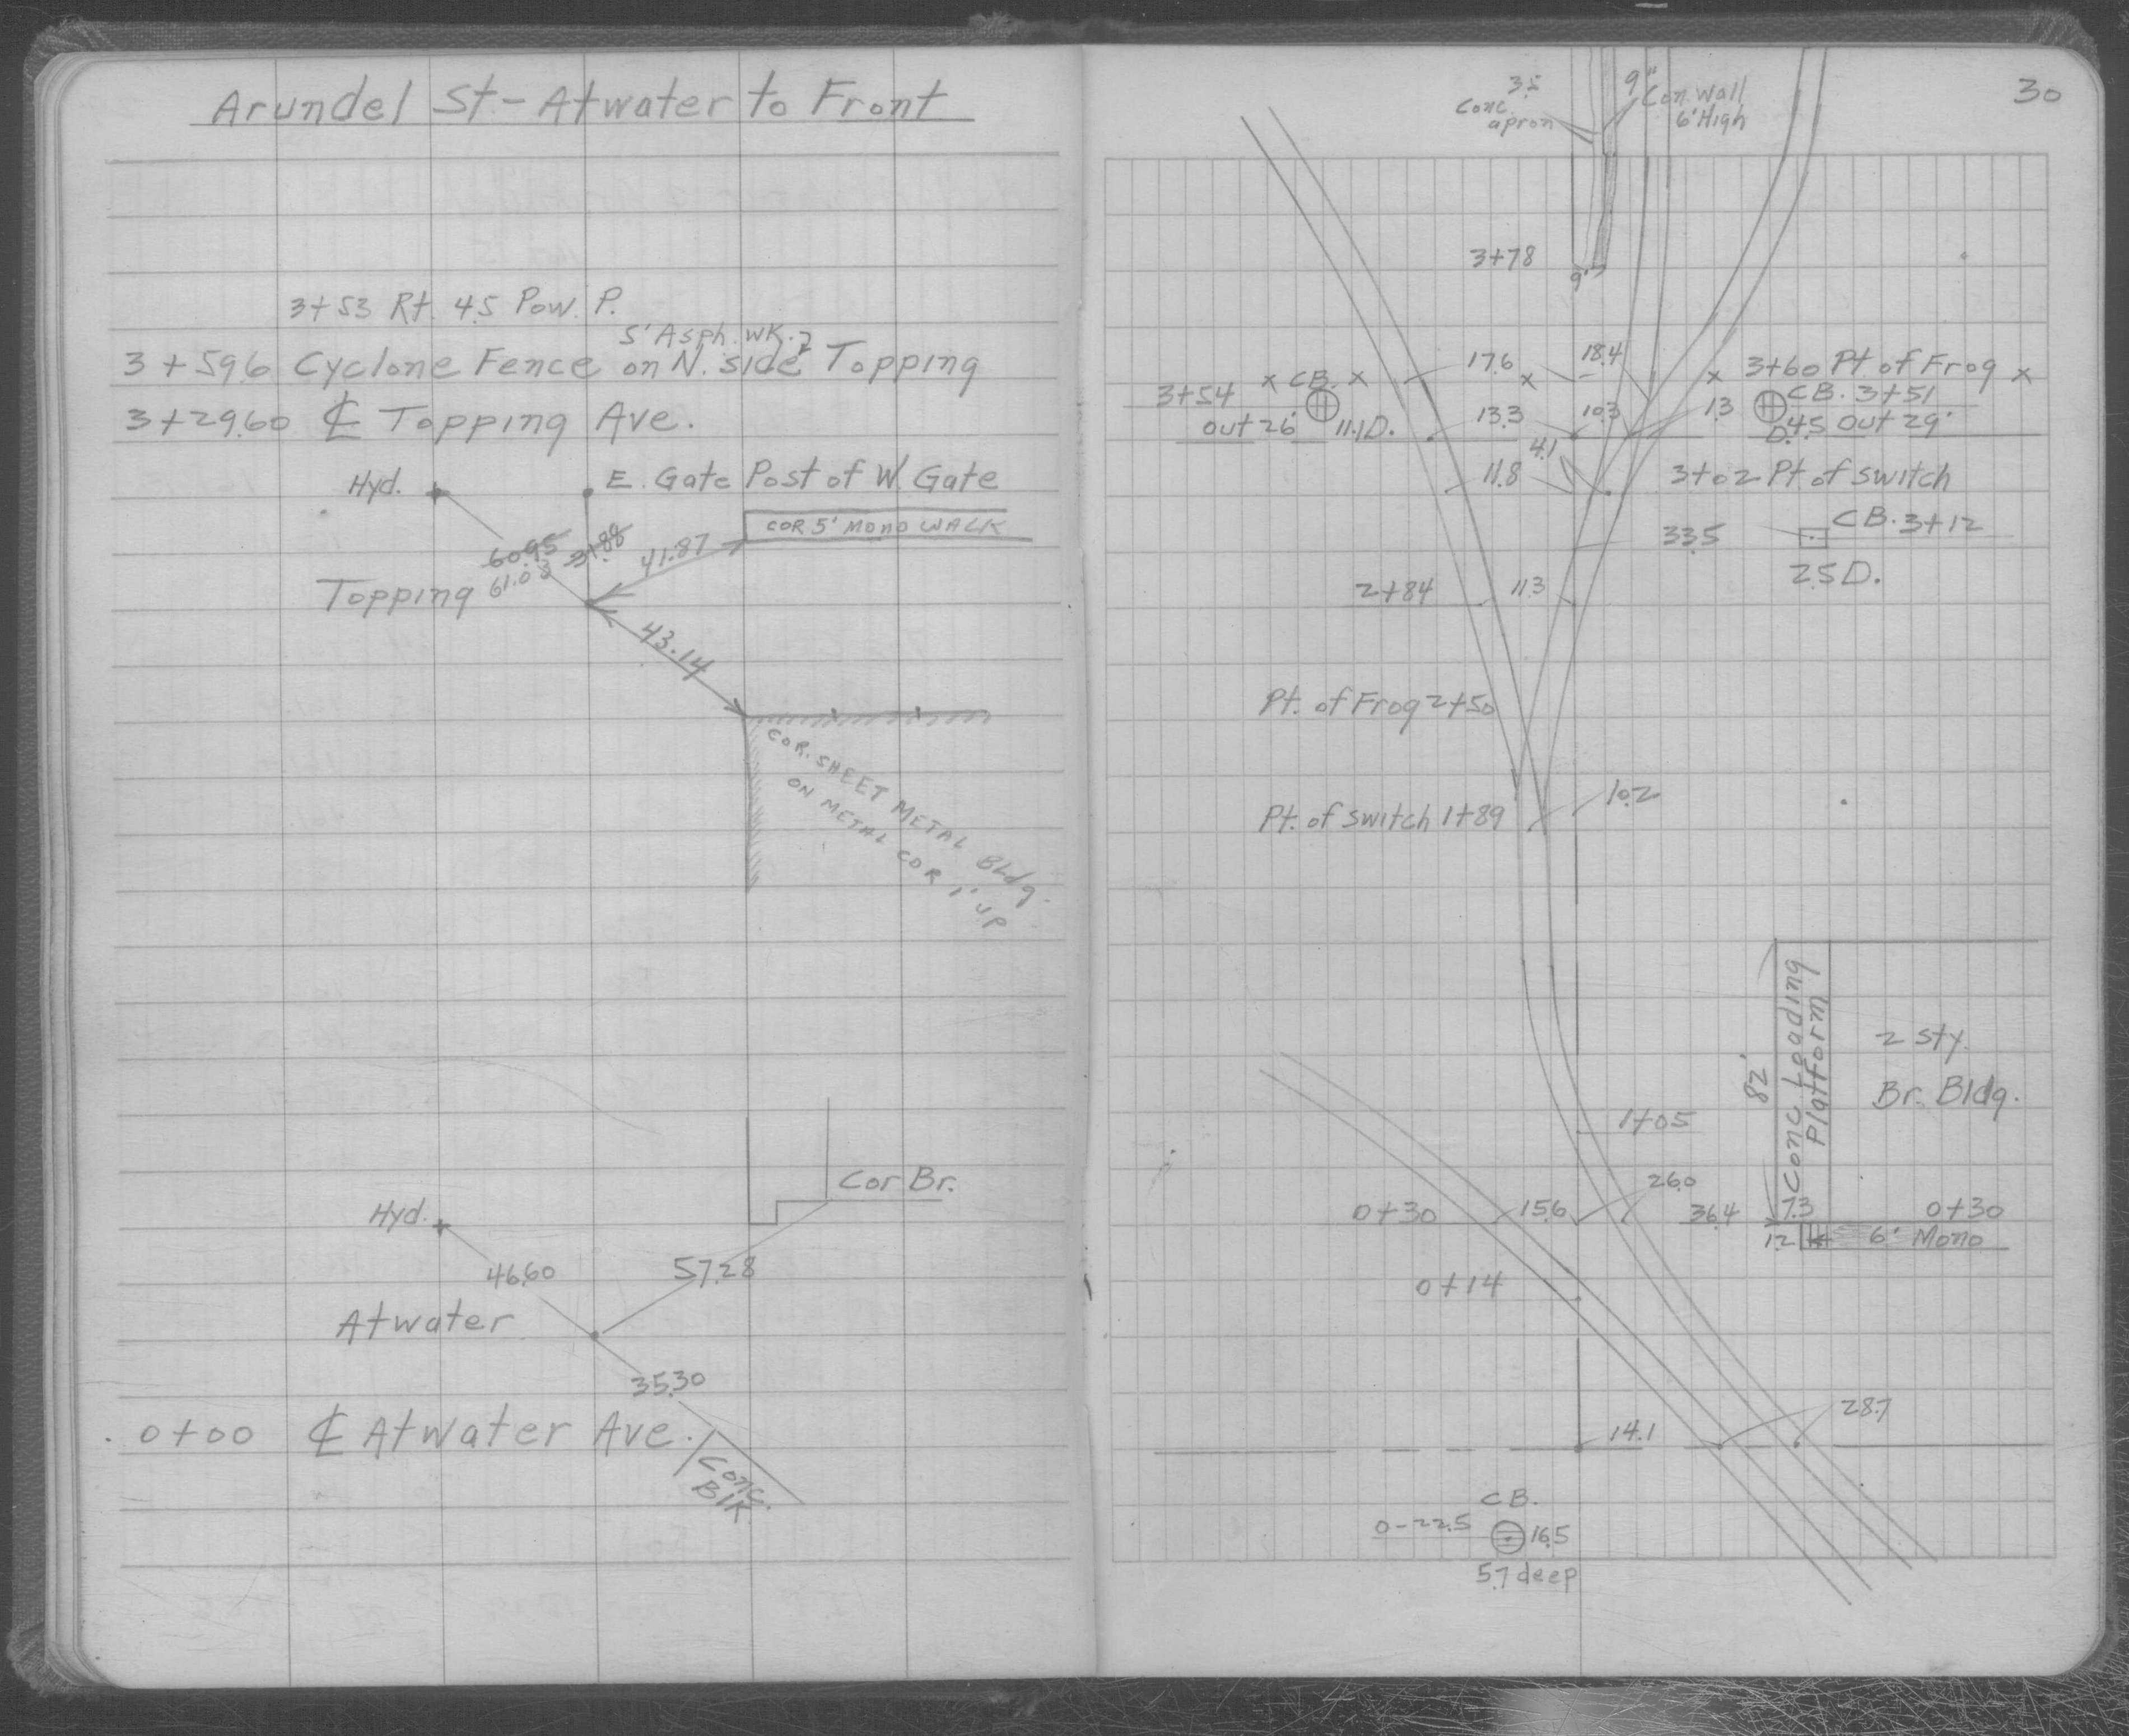 Arundel St - Atwater to Front
3+53 Rt. 4.5 Pow. P.
5' Asph. WK.
3+59.6 Cyclone Fence on N. side Topping
3+29.60 ℄ Topping Ave.
Hyd.
E. Gate Post of W. Gate
COR. 5' MONO WALK
60.95
31.88
41.87
61.03
Topping
43.14
COR. SHEET METAL Bldg.
ON METAL COR 1' UP
Cor Br.
Hyd.
46.60
57.28
Atwater
35.30
0+00 ℄ Atwater Ave.
Conc.
Blk
30
3.5
Conc.
apron
9"
Con. Wall
6' High
3+78
9"
17.6
18.4
3+60 Pt. of Frog
3+54
CB.
CB. 3+51
out 26'
11.1 D.
13.3
10.3
13
D. 4.5 out 29'
4.1
11.8
3+02 Pt. of switch
CB. 3+12
33.5
2.5 D.
2+84
11.3
Pt. of Frog 2+50
10.2
Pt. of switch 1+89
Conc Loading
Platform
82'
2 sty.
Br. Bldg.
1+05
26.0
0+30
15.6
36.4
7.3
0+30
12
6' Mono
0+14
28.7
14.1
CB.
0-22.5
16.5
5.7 deep